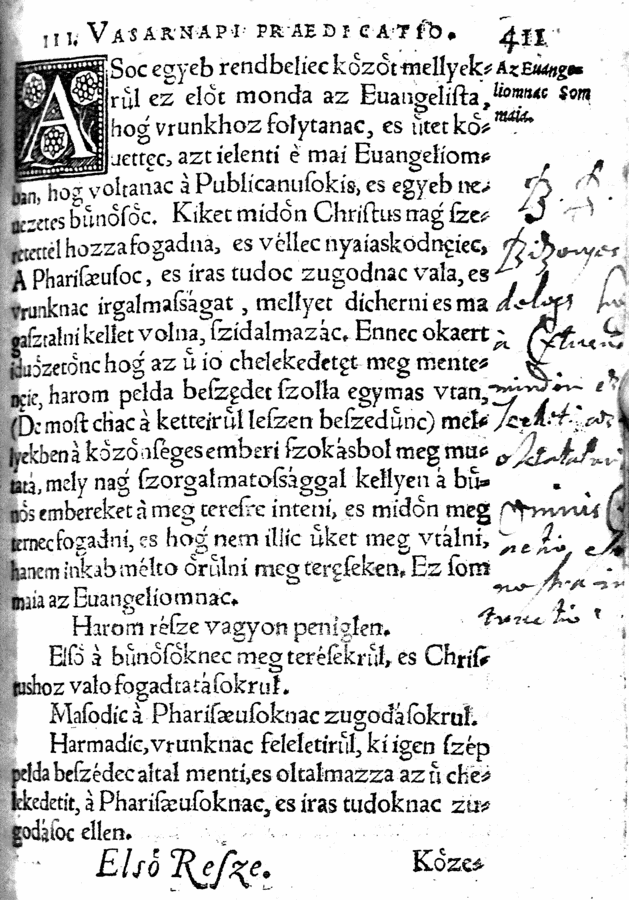 III. VASARNAPI PRAEDICATIO. 411
ASoc egyeb rendbeliec ko̊zo̊t mellyek⸗
ru̇l ez elo̊t monda az Euangelista,
hog vrunkhoz folytanac, es u̇tet ko̊⸗
uettęc, azt ielenti è mai Euangeliom⸗
ban, hog voltanac à Publicanusokis, es egyeb ne⸗
uezetes bu̇no̊so̊c. Kiket mido̊n Christus nag sze⸗
retettel hozza fogadna, es véllec nyaiaskodnęiec,
A Pharisæusoc, es iras tudoc zugodnac vala, es
vrunknac irgalmasságat, mellyet dicherni es ma
gasztalni kellet volna, szidalmazác. Ennec okaert
iduo̊zeto̊nc hog az u̇ io chelekedetęt meg mente⸗
nęie, harom pelda beszędet szolla egymas vtan,
(De most chac à ketteiru̇l leszen beszedu̇nc) mel⸗
lyekben à ko̊zo̊nseges emberi szokásbol meg mu⸗
tatá, mely nag szorgalmatossággal kellyen à bu̇⸗
no̊s embereket à meg teresre inteni, es mido̊n meg
ternec fogadni, es hog nem illic u̇ket meg vtálni,
hanem inkab mélto o̊ru̇lni meg teręseken. Ez som
maia az Euangeliomnac.
Harom része vagyon peniglen.
Elso̊ à bu̇no̊so̊knec meg térésekru̇l, es Chris⸗
tushoz valo fogadtatásokrul.
Masodic à Pharisæusoknac zugodásokrul.
Harmadic, vrunknac feleletiru̇l, ki igen szép
pelda beszédec altal menti, es oltalmazza az u̇ che⸗
lekedetit, à Pharisæusoknac, es iras tudoknac zu⸗
godásoc ellen.
Elso̊ Resze. Ko̊ze⸗
Az Euange⸗
liomnac som
maia.
B.
dologh
à
Omnis
nostra in